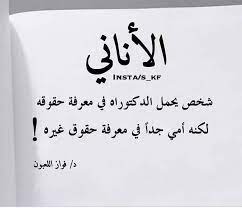 الأناني
INSTA/S_KF
شخص يحمل الدكتوراه في معرفة حقوقه
لكنه أمي جداً في معرفة حقوق غيره !
د/ فواز اللعبون